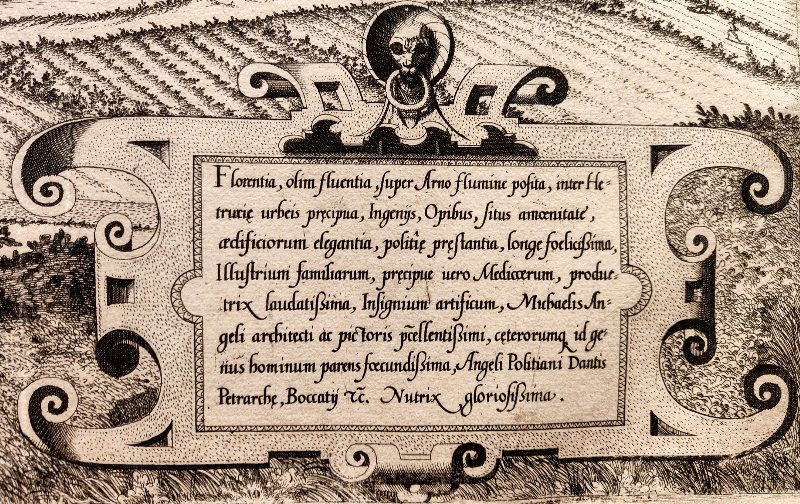 Florentia, olim fluentia, super Arno flumine posita, inter He-
trurię urbeis pręcipua, Ingenijs, Opibus, situs amœnitate,
ædificiorum elegantia, politię prestantia, longe fœlicissima,
Illustrium familiarum, pręcipue uero Medicœrum, produc-
trix laudatissima, Insignium artificum, Michaelis An-
geli architecti ac pictoris p̄cellentissimi, cęterorumq id ge-
nus hominum parens fœcundissima, Angeli Politiani Dantis
Petrarchę, Boccatij &c. Nutrix gloriosissima.